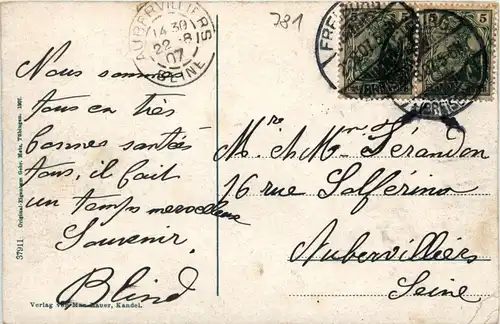 381
AUBERVILLIERS
14 30
22 - 8
07
SEINE
5 5
Nous sommes
tous en très
bonnes santés
tous, il fait
un temps merveilleux
Souvenir,
Blind
Mr et Mme
16 rue Solférino
Aubervilliers
Seine
37911 Original-Eigentum Gebr. Metz, Tübingen. 1907.
Verlag von Max Bauer, Kandel.